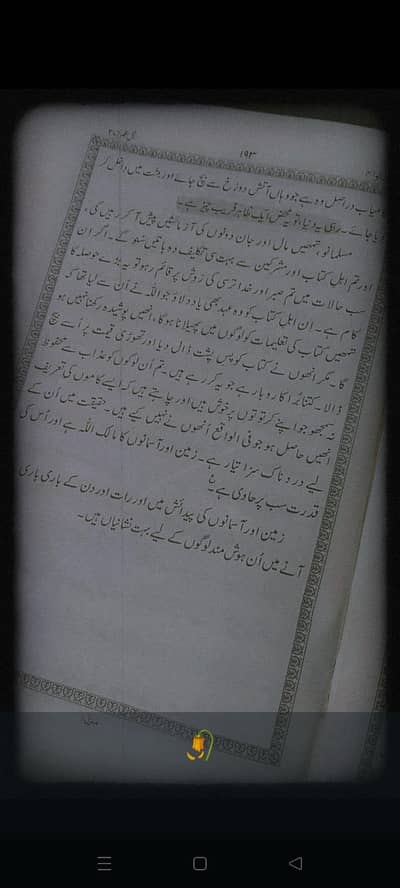 آل عمران ۳
۱۹۳
کامیاب دراصل وہ ہے جو وہاں آتشِ دوزخ سے بچ جائے اور جنت میں داخل کر
دیا جائے۔ رہی یہ دنیا، تو یہ محض ایک ظاہر فریب چیز ہے۔
مسلمانو، تمہیں مال اور جان دونوں کی آزمائشیں پیش آ کر رہیں گی،
اور تم اہلِ کتاب اور مشرکین سے بہت سی تکلیف دہ باتیں سنو گے۔ اگر ان
سب حالات میں تم صبر اور خدا ترسی کی روش پر قائم رہو تو یہ بڑے حوصلہ کا
کام ہے۔ اِن اہلِ کتاب کو وہ عہد بھی یاد دلاؤ جو اللہ نے ان سے لیا تھا کہ
تمہیں کتاب کی تعلیمات کو لوگوں میں پھیلانا ہوگا، انھیں پوشیدہ رکھنا نہیں ہو
گا۔ مگر انھوں نے کتاب کو پسِ پشت ڈال دیا اور تھوڑی قیمت پر اُسے بیچ
ڈالا۔ کتنا بُرا کاروبار ہے جو یہ کر رہے ہیں۔ تم اُن لوگوں کو عذاب سے محفوظ
نہ سمجھو جو اپنے کرتوتوں پر خوش ہیں اور چاہتے ہیں کہ ایسے کاموں کی تعریف
انھیں حاصل ہو جو فی الواقع انھوں نے نہیں کیے ہیں۔ حقیقت میں اُن کے
لیے دردناک سزا تیار ہے۔ زمین اور آسمانوں کا مالک اللہ ہے اور اُس کی
قدرت سب پر حاوی ہے۔ ع
زمین اور آسمانوں کی پیدائش میں اور رات اور دن کے باری باری
آنے میں اُن ہوش مند لوگوں کے لیے بہت نشانیاں ہیں۔